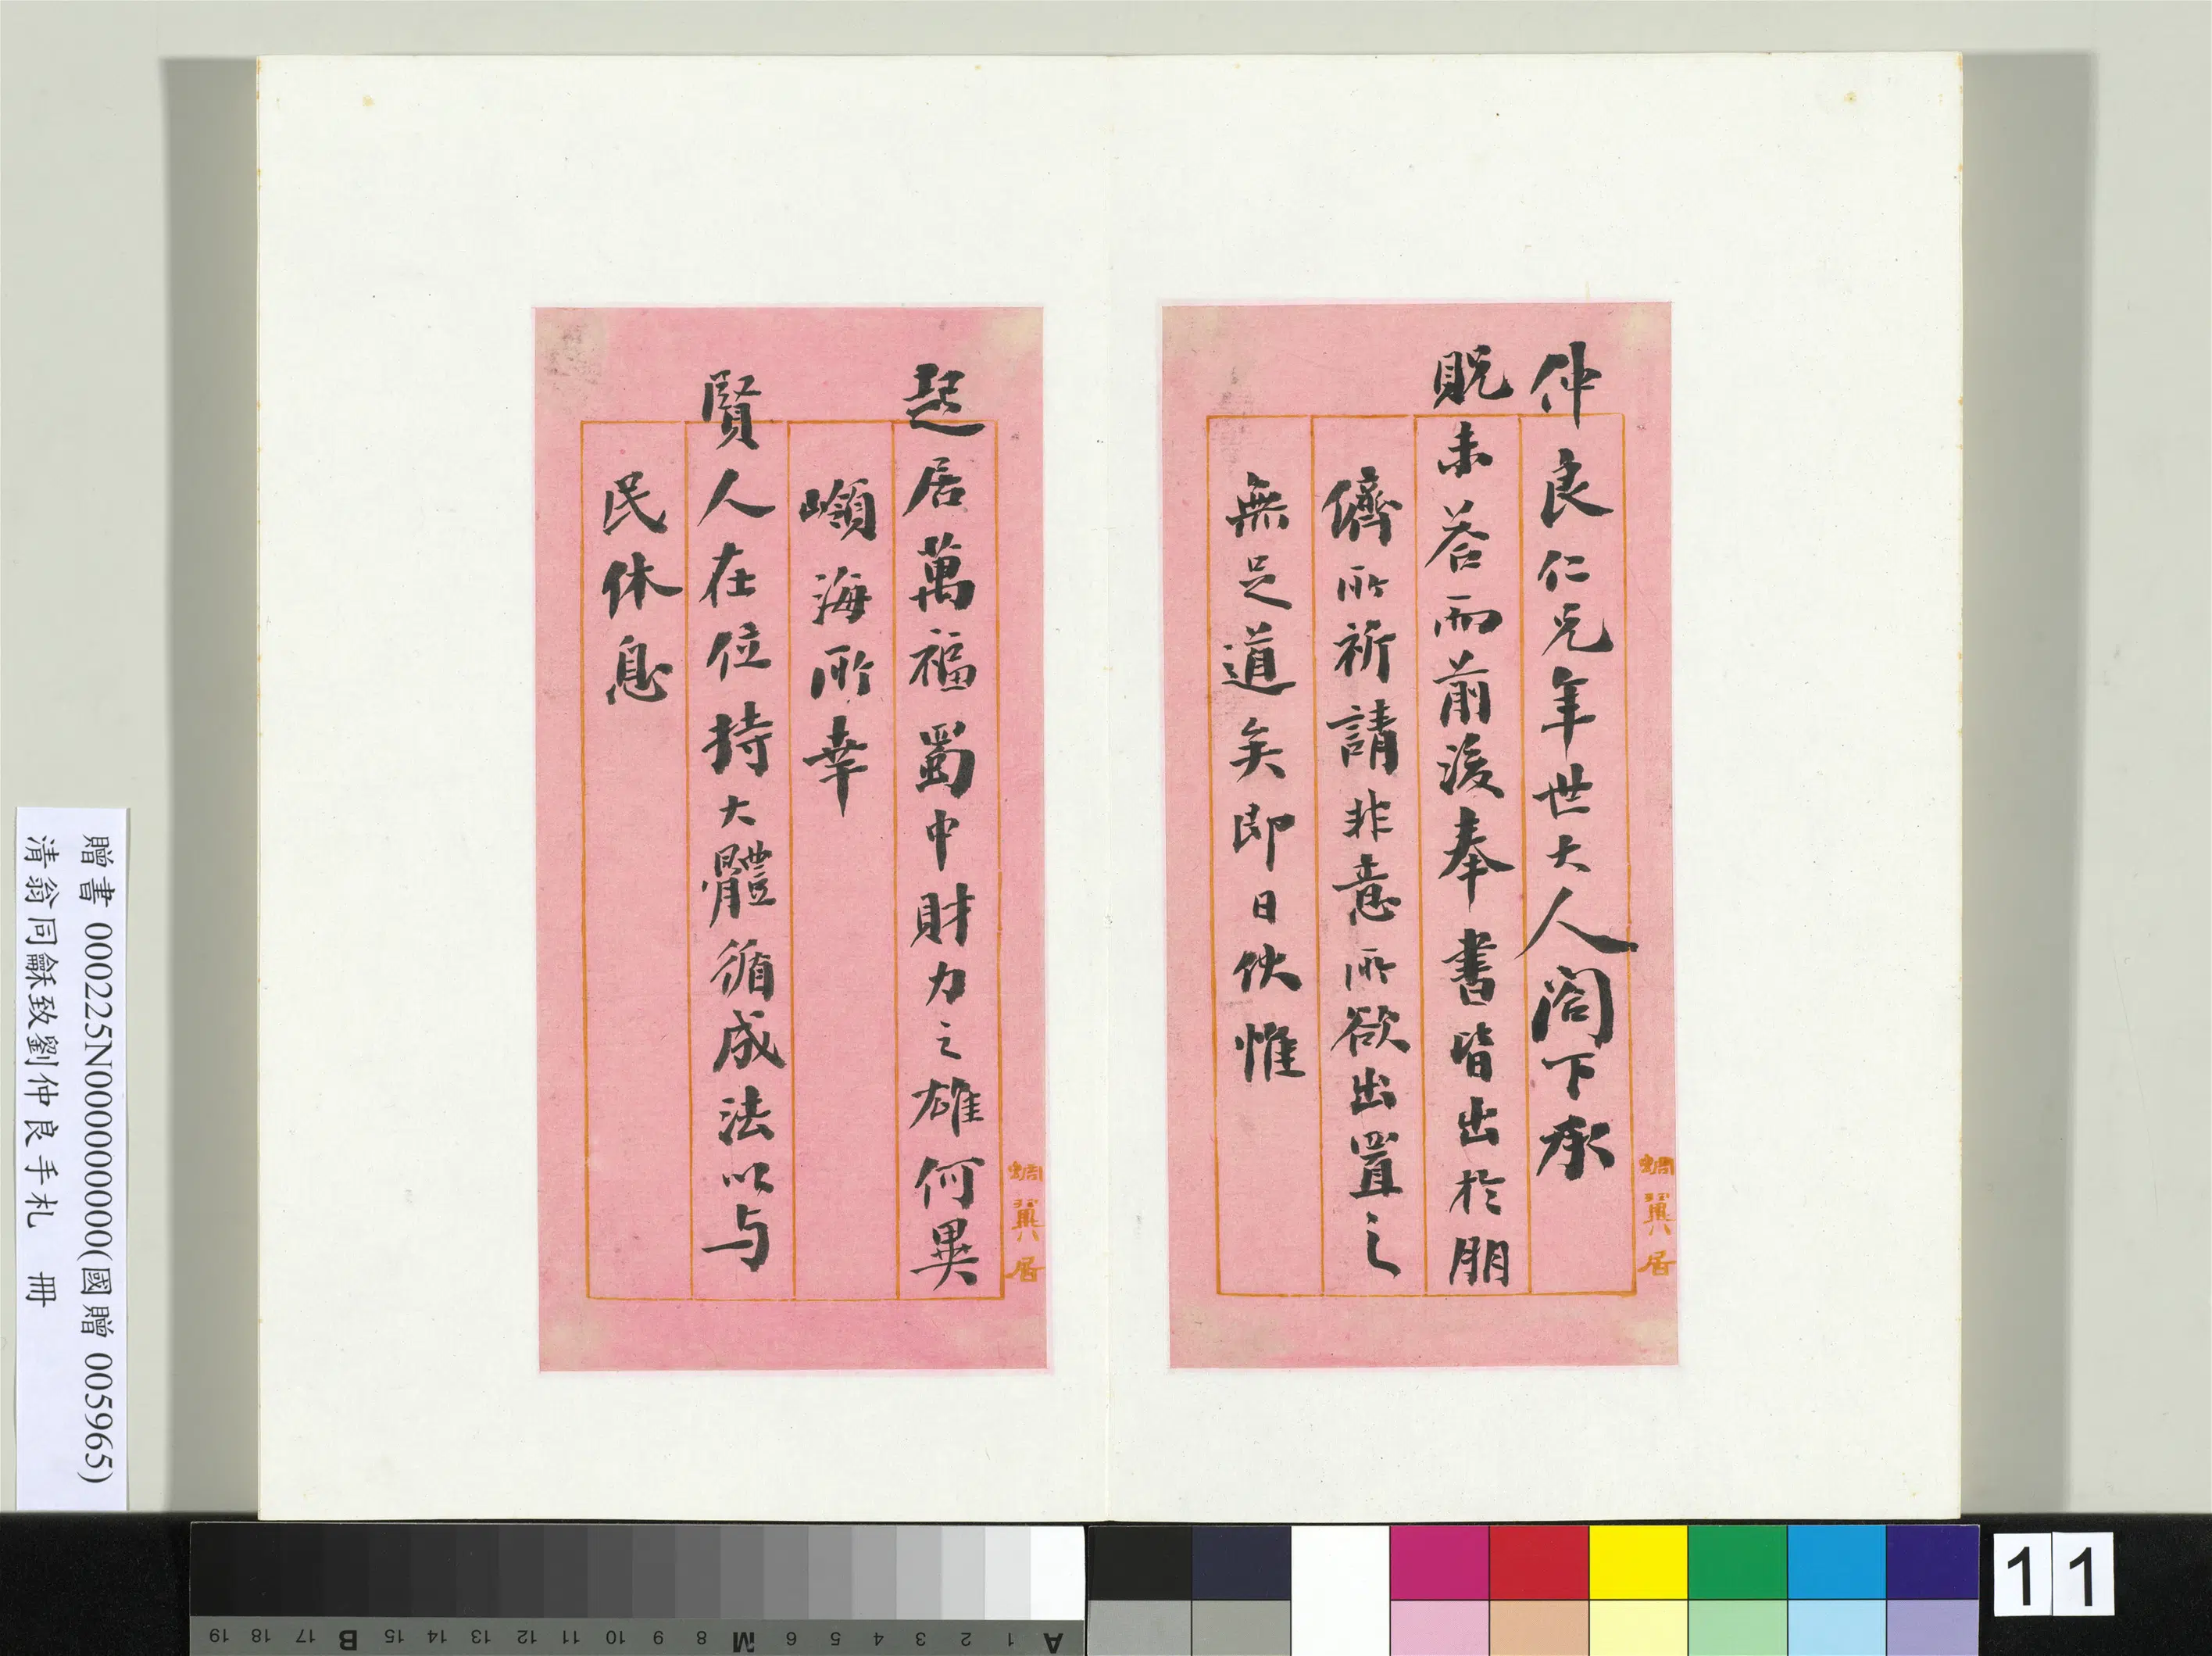 仲良仁兄年世大人閣下承
貺未荅而前後奉書皆出於朋
儕所祈請非意所欲出置之
無足道矣即日伏惟
蜩翼居
起居萬福蜀中財力之雄何異
嶺海所幸
賢人在位持大體循成法以与
民休息
蜩翼居
贈書 000225N000000000(國贈 005965)
清翁同龢致劉仲良手札 冊
A 1 2 3 4 5 6 M 8 9 10 11 12 13 14 15 B 17 18 19
11